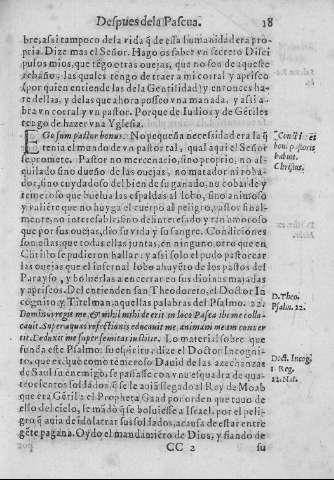 Despues de la Pascua. 18
bre, assi tampoco de la vida q̃ de essa humanidad era pro
pria. Dize mas el Señor. Hago os saber vn secreto Disci
pulos mios, que tẽgo otras ouejas, que no son de aqueste
rebaño, las quales tengo de traer a mi corral y aprisco
(por quien entiende las de la Gentilidad) y entonces ha-
re dellas, y de las que ahora posseo vna manada, y assi a-
bra vn corral y vn pastor. Porque de Iudios y de Gẽtiles
tengo de hazer vna Yglesia.
EGo sum pastor bonus. No pequeña necessidad era la q̃
tenia el mundo de vn pastor tal, qual aqui el Señor
se promete. Pastor no mercenario, sino proprio, no al-
quilado sino dueño de las ouejas, no matador ni roba-
dor, sino cuydadoso del bien de su ganado, no cobarde y
temeroso que huelua las espaldas al lobo, sino animoso
y valiẽte que no huya el cuerpo al peligro, pastor final-
mente, no interessable, sino desinteresado y tan amoroso
que por sus ouejas, dio su vida y su sangre. Condiciones
son estas: que todas ellas juntas, en ninguno otro que en
Christo se pudieron hallar, y assi solo el pudo pastorear
las ouejas que el infernal lobo ahuyẽto de los pastos del
Parayso, y boluerlas a encerrar en sus diuinas manadas
y apriscos. Del entienden san Theodoreto, el Doctor In
cognito y Titelman, aquellas palabras del Psalmo. 22.
Dominus regit me, & nihil mihi deerit in loco Pascua ibi me collo-
cauit. Super aquas refectionis educauit me, animam meam conuer
tit. Deduxit me super semitas iustitiæ. Lo material sobre que
funda este Psalmo, su espiritu, dize el Doctor Incogni-
to, que es, que como temeroso Dauid de las asechanzas
de Saul su enemigo, se passasse con vnu esquadra de qua-
trocientos soldados, q̃ se le auiã llegado al Rey de Moab
que era Gẽtil a el Propheta Gaad por orden que tuuo de
esso del cielo, le mãdò q̃ se boluiesse a Israel, por el peli-
gro q̃ auia de idolatrar sus soldados, a causa de estar entre
gẽte pagana. Oydo el mandamiẽto de Dios, y fiando de
CC 2 su
boni pastoris
habuit
Christus.
D. Theo.
Psalm. 22.
Doct. Incog.
1. Reg.
22. Nu.